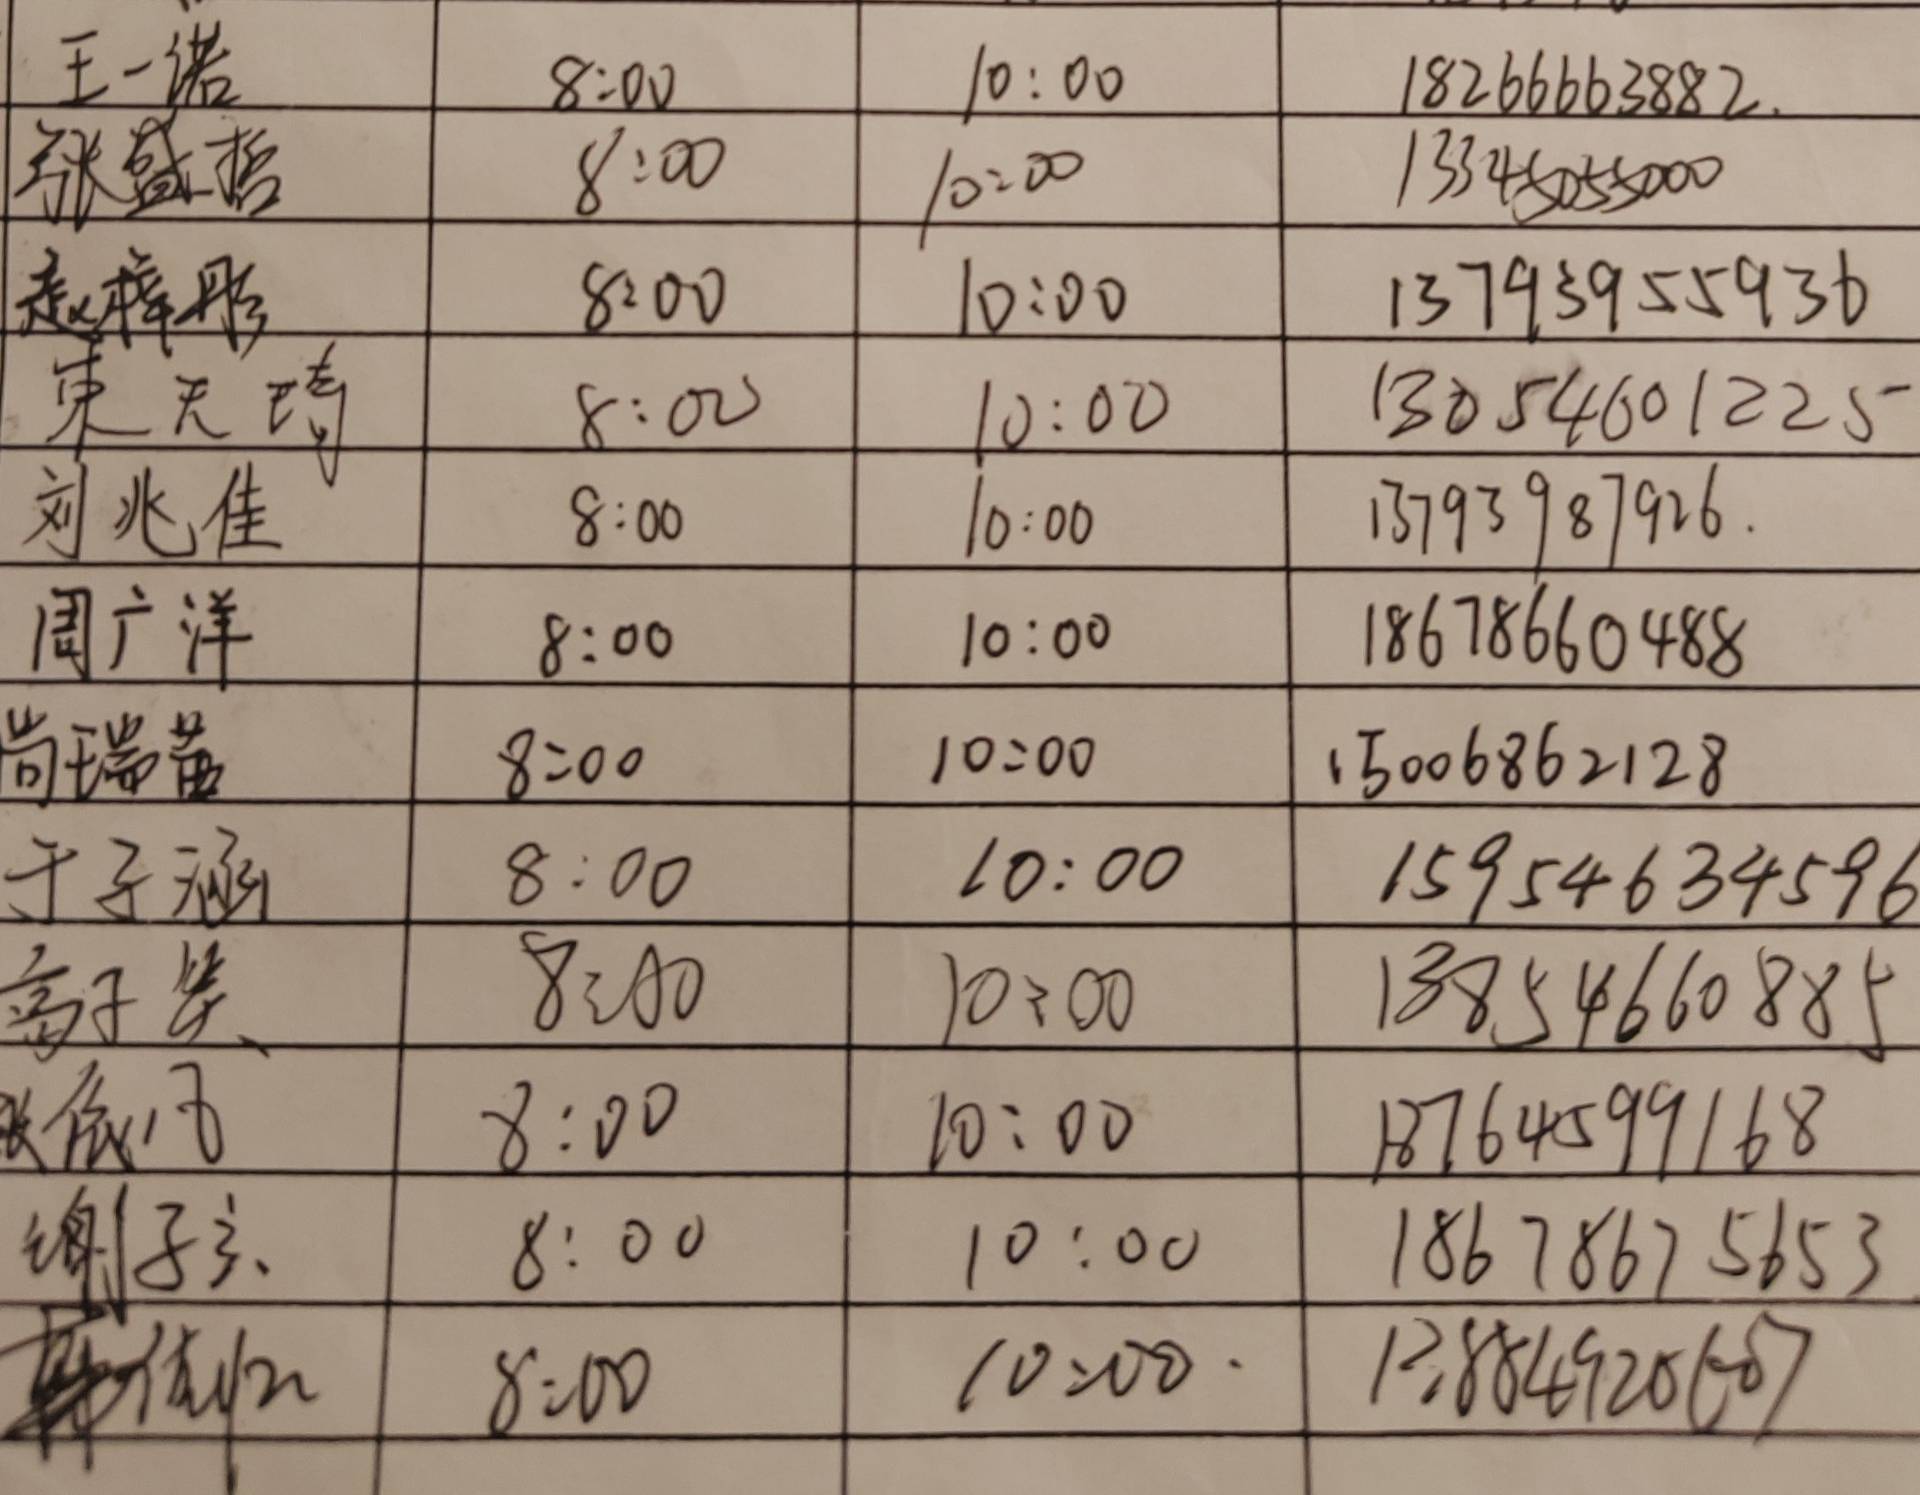 王一诺 8:00 10:00 18266663882.
张盛哲 8:00 10:00 13345055000
赵梓彤 8:00 10:00 13793955936
東天琦 8:00 10:00 13054601225
刘兆佳 8:00 10:00 13793987926.
周广洋 8:00 10:00 18678660488
尚瑞苗 8:00 10:00 15006862128
于子涵 8:00 10:00 15954634596
高子 8:00 10:00 13854660885
依凡 8:00 10:00 18764599168
谢子 8:00 10:00 18678675653
8:00 10:00